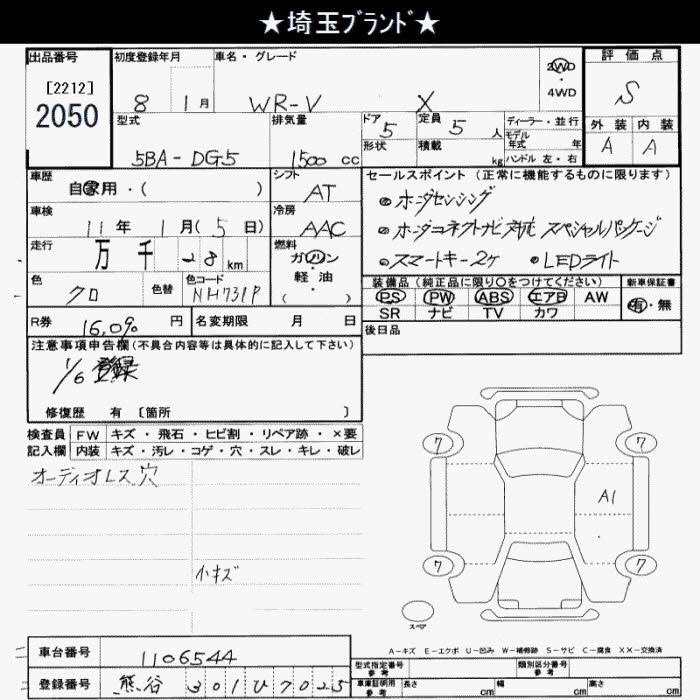 ★埼玉ﾌﾞﾗﾝﾄﾞ★
出品番号 初度登録年月 車名・グレード 評価点
[2212]
2050
8 1月 WR-V X 2WD・4WD S
型式 排気量 ドア 5 定員 5 人 ディーラー・並行 外装 内装
モデル年式 年
5BA-DG5 1500 cc 形状 積載 kg ハンドル 左・右 A A
車歴 シフト セールスポイント (正常に機能するものに限ります)
自家用・( ) AT ホンダセンシング
車検 冷房
11年 1月(5日) AAC ホンダコネクトナビ対応 スペシャルパッケージ
走行 燃料
万 千 28 km ガソリン スマートキー2ヶ LEDライト
軽油
( )
色 色替 色コード 装備品 (純正品に限り○をつけてください) 新車保証書
クロ NH731P PS PW ABS エアB AW 有・無
SR ナビ TV カワ
R券 16,090 円 名変期限 月 日 後日品
注意事項申告欄(不具合内容等は具体的に記入して下さい)
1/6 登録
修復歴 有 〔箇所 〕
検査員 FW キズ・飛石・ヒビ割・リペア跡・×要
記入欄 内装 キズ・汚レ・コゲ・穴・スレ・キレ・破レ
オーディオレス穴
小キズ
7 7
A1
7 7
スペア
A-キズ E-エクボ U-凹み W-補修跡 S-サビ C-腐食 XX-交換済
車台番号 1106544
型式指定番号 参考 類別区分番号 参考
登録番号 熊谷 301 ひ 7025
車庫証明用 参考 長さ cm 幅 cm 高さ cm